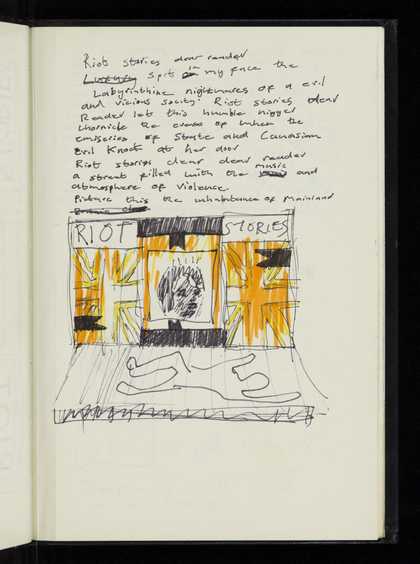 Riot stories dear reader
Luxury spits in my face the
Labyrinthine nightmares of a evil
and vicious socity. Riot stories dear
Reader let this humble nigger
chornicle the eve of when the
emiseries of State and Caucasian
evil Knock at her door
Riot stories dear dear reader
a street filled with the music and
atmosphere of violence
Picture this the inhabitance of Mainland
RIOT STORIES